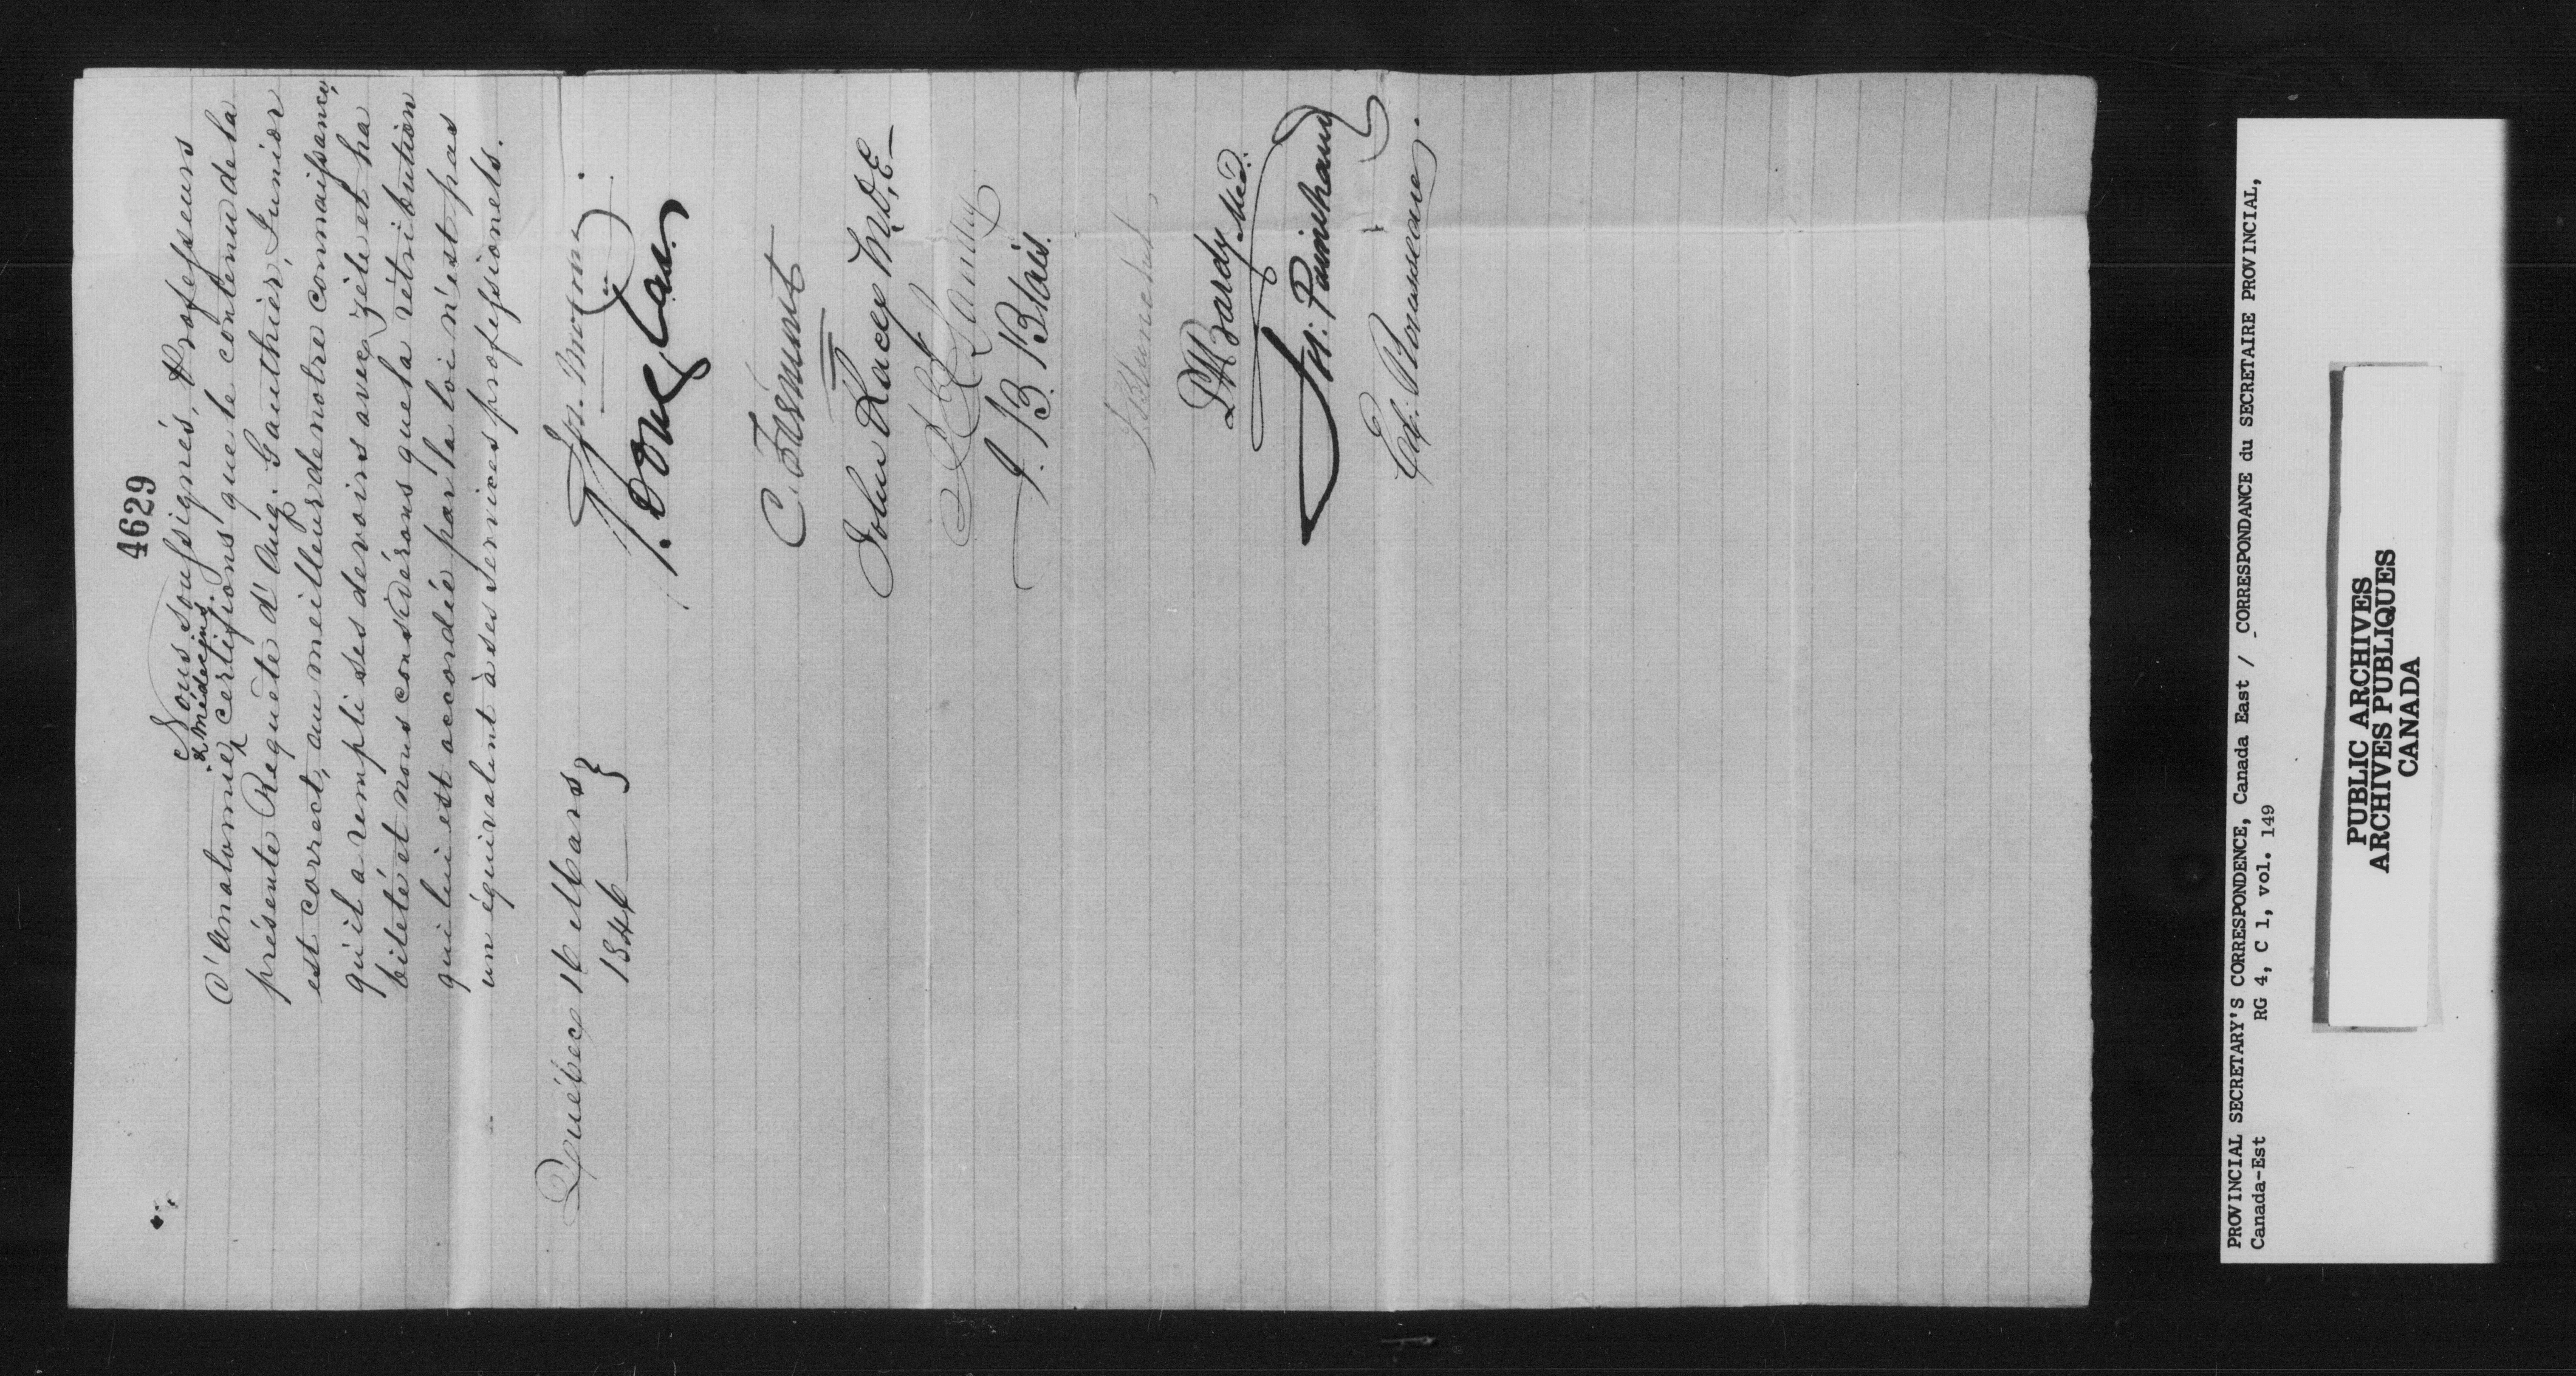 4629
Nous soussignés, Professeurs
& Médecins.
d'Anatomie certifions que le contenu de la
présente Requête d'Aug. Gauthier, Junior
est correct, au meilleur de notre connaissance,
qu'il a rempli ses devoirs avec zèle et ha
bileté et nous considérons que la rétribution
qui lui est accordée par la loi n'est pas
un équivalent à ses services professionels.
Québec 16 Mars
1846
Jos. Morrin
J. Douglas
C. Frémont
John Racey M.D. E
J. B. Blais.
P M Bardy Med.
Jos: Painchaud
Ed: Rousseau.
PROVINCIAL SECRETARY'S CORRESPONDENCE, Canada East / CORRESPONDANCE du SECRETAIRE PROVINCIAL,
Canada-Est RG 4, C 1, vol. 149
PUBLIC ARCHIVES
ARCHIVES PUBLIQUES
CANADA